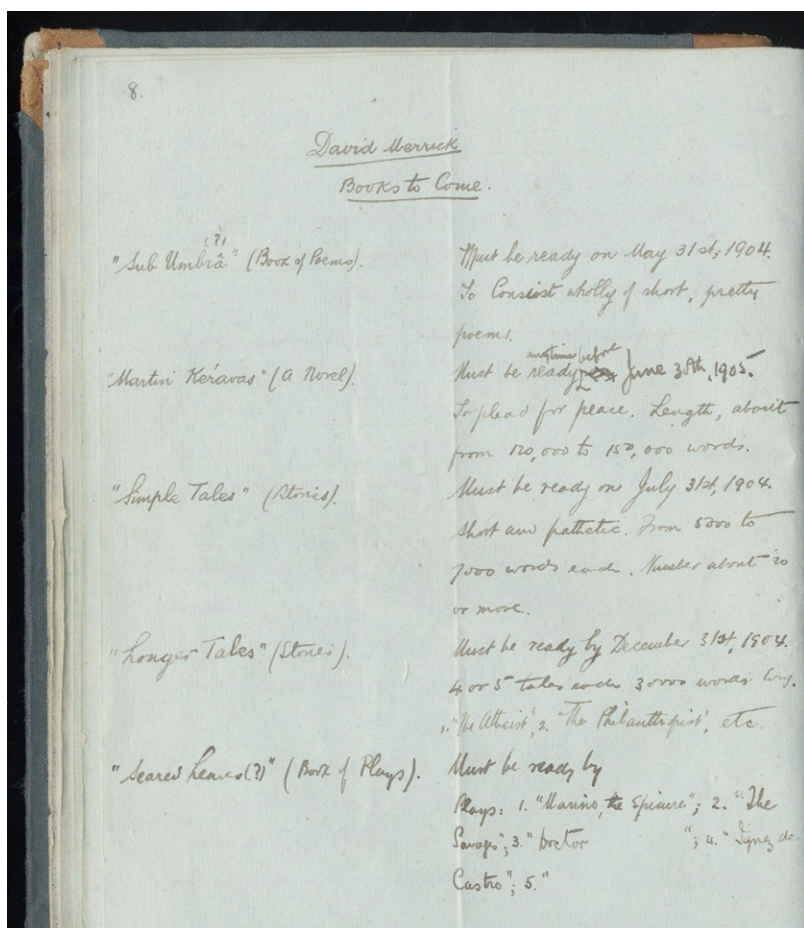 8.
David Merrick
Books to Come.
(?)
"Sub Umbrâ" (Book of Poems).
Must be ready on May 31st, 1904.
To Consist wholly of short, pretty
poems.
"Martin Kéravas" (A Novel).
anytime before
Must be ready June 30th, 1905.
To plead for peace. Length, about
from 120,000 to 150,000 words.
"Simple Tales" (Stories).
Must be ready on July 31st, 1904.
Short and pathetic. From 5000 to
7000 words each. Number about 20
or more.
"Longer Tales" (Stories).
Must be ready by December 31st, 1904.
4 or 5 tales each 30000 words long.
1. "The Atheist", 2. "The Philanthropist", etc.
"Seared Leaves (?)" (Book of Plays).
Must be ready by
Plays: 1. "Marino, the Epicure"; 2. "The
Savage"; 3. "Doctor "; 4. "Ignez de
Castro"; 5. "